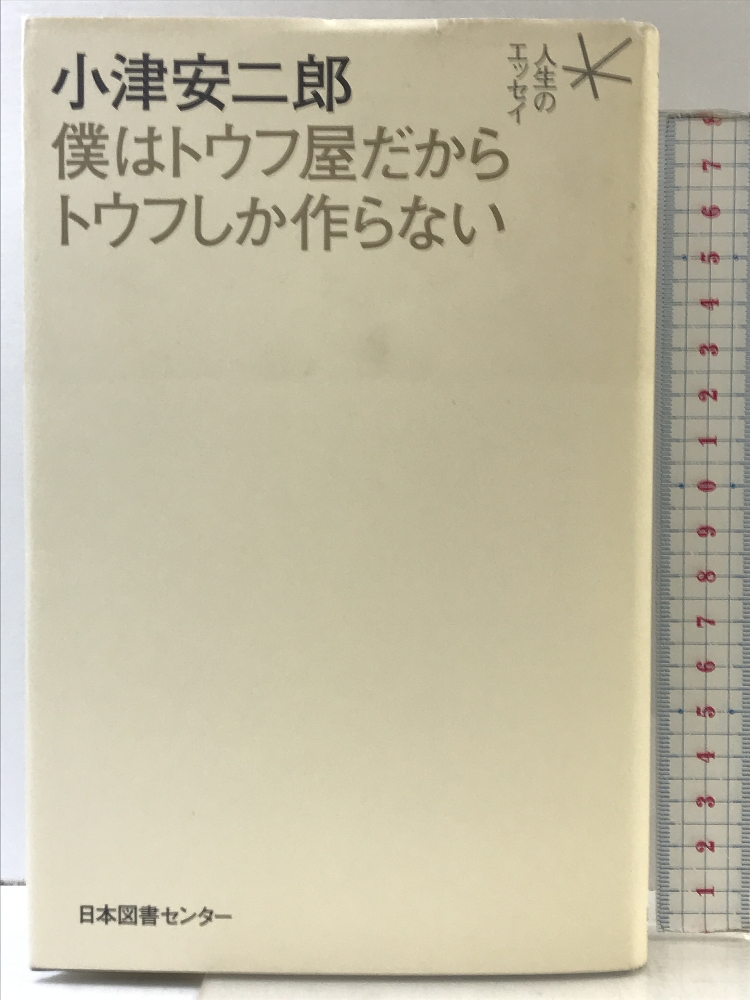 小津安二郎
僕はトウフ屋だから
トウフしか作らない
人生の
エッセイ
日本図書センター
8
7
6
5
4
3
2
1
0
9
8
7
6
5
4
3
2
1